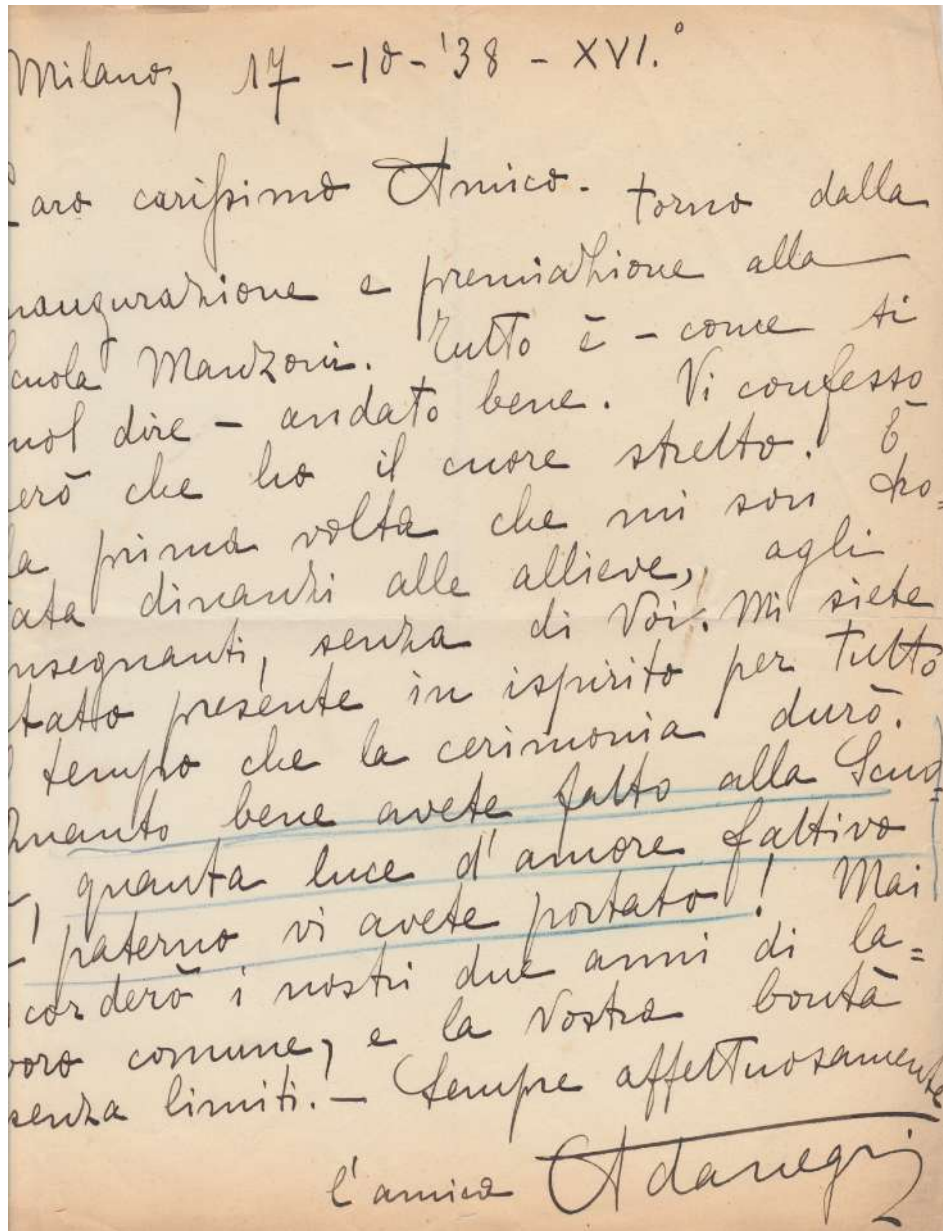 Milano, 17 -10- '38 - XVI.°
Caro carissimo Amico. torno dalla
naugurazione e premiazione alla
cuola Manzoni. Tutto è - come si
uol dire - andato bene. Vi confesso
erò che ho il cuore stretto. È
la prima volta che mi son tro=
ata dinanzi alle allieve, agli
nsegnanti, senza di Voi. Mi siete
tato presente in ispirito per tutto
l tempo che la cerimonia durò.
Quanto bene avete fatto alla Scuo
, quanta luce d'amore fattivo
paterno vi avete portato! Mai
corderò i nostri due anni di la=
voro comune, e la Vostra bontà
senza limiti. - Sempre affettuosamente
l'amica Adanegri